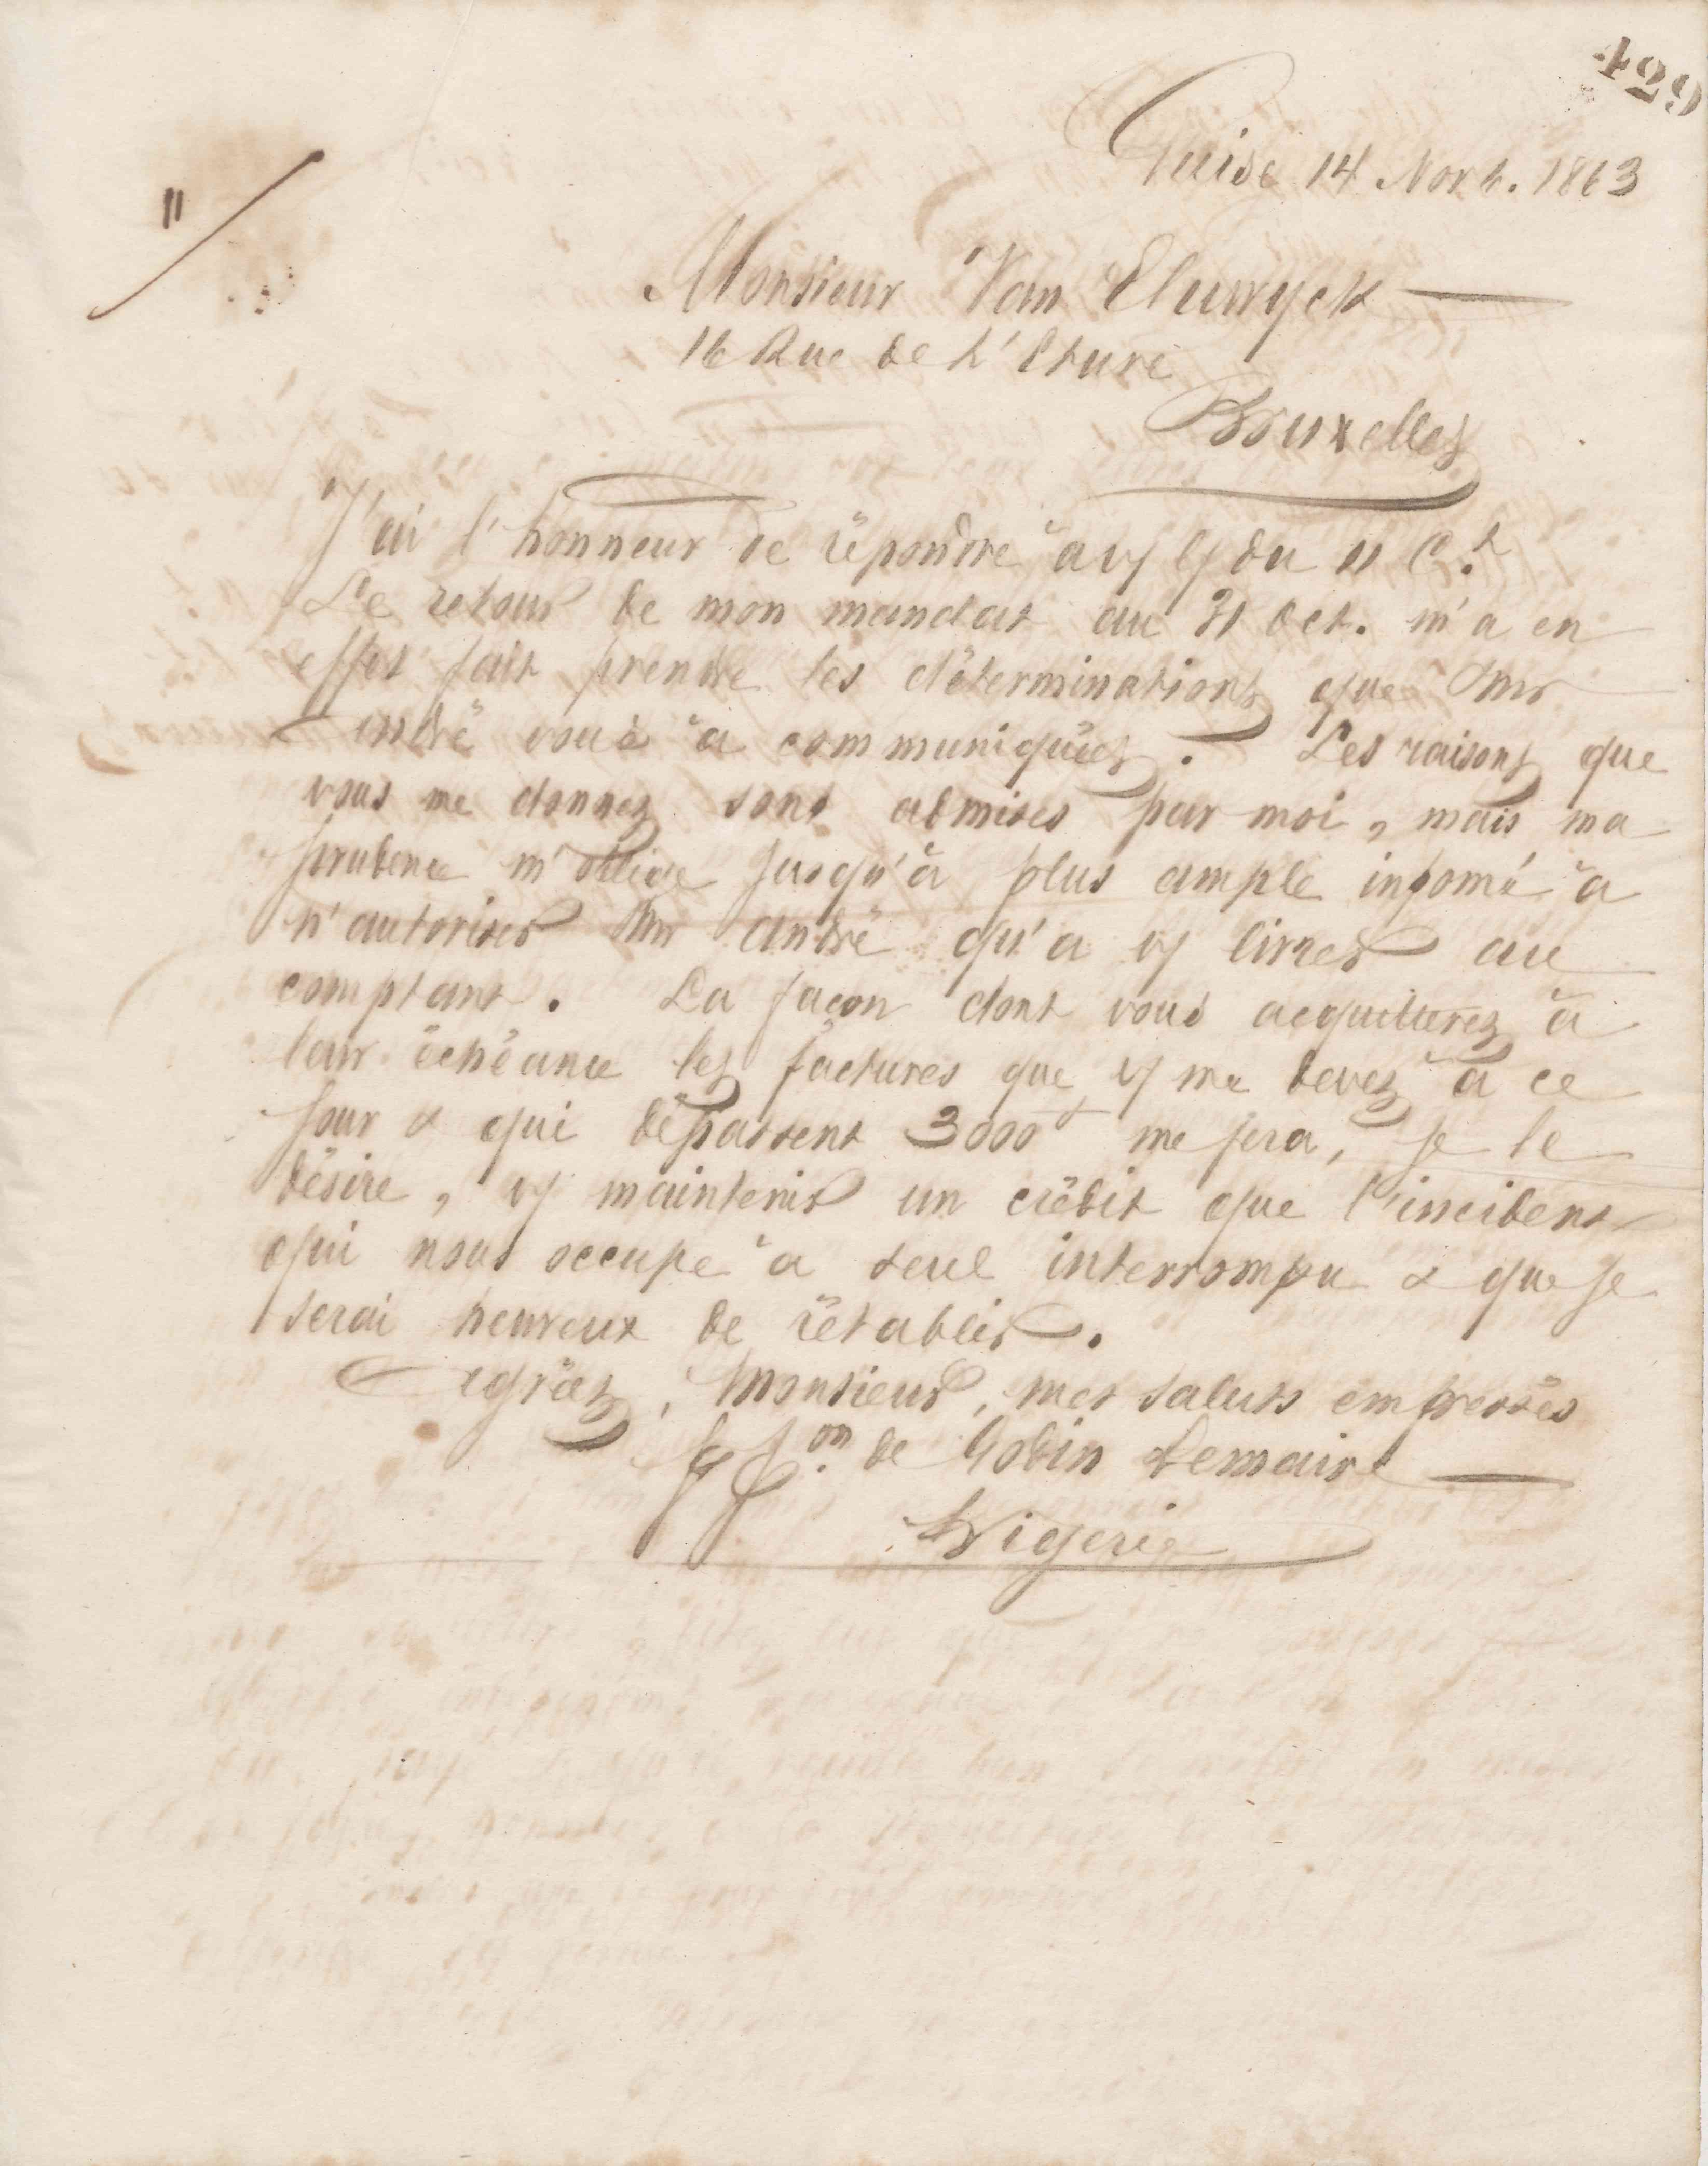 429
Guise 14 Novb. 1863
11
Monsieur Van Elewyck
16 Rue de l'Etuve
Bruxelles
J'ai l'honneur de répondre à v/ l/ du 11 Ct.
Le retour de mon mandat au 31 Oct. m'a en
effet fait prendre les déterminations que Mr
André vous a communiquées. Les raisons que
vous me donnez sont admises par moi, mais ma
prudence m'oblige jusqu'à plus ample informé à
n'autoriser Mr André qu'a v/ livrer au
comptant. La façon dont vous acquitterez à
leur échéance les factures que v/ me devez à ce
jour & qui dépassent 3000f me fera, je le
désire, v/ maintenir un crédit que l'incident
qui nous occupe a seul interrompu & que je
serai heureux de rétablir.
Agréez, Monsieur, mes saluts empressés
on de Godin Lemaire